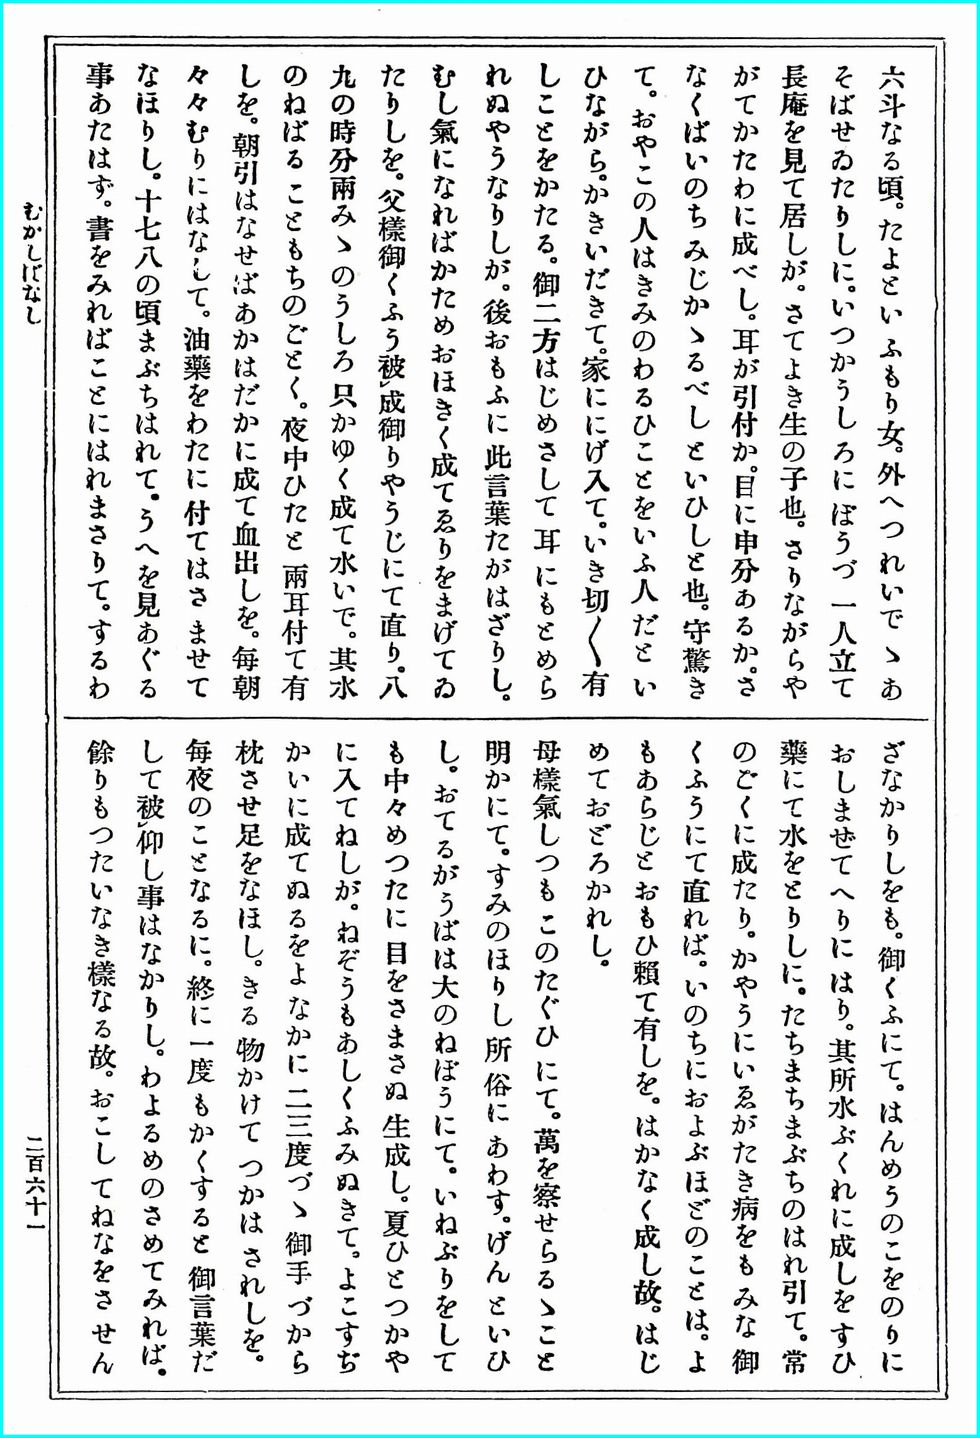 六斗なる頃。たよといふもり女。外へつれいでゝあ
そばせゐたりしに。いつかうしろにぼうづ一人立て
長庵を見て居しが。さてよき生の子也。さりながらや
がてかたわに成べし。耳が引付か。目に申分あるか。さ
なくばいのちみじかゝるべしといひしと也。守驚き
て。おやこの人はきみのわるひことをいふ人だとい
ひながら。かきいだきて。家ににげ入て。いき切〱有
しことをかたる。御二方はじめさして耳にもとめら
れぬやうなりしが。後おもふに此言葉たがはざりし。
むし氣になればかためおほきく成てゑりをまげてゐ
たりしを。父樣御くふう被㆑成御りやうじにて直り。八
九の時分兩みゝのうしろ只かゆく成て水いで。其水
のねばることもちのごとく。夜中ひたと兩耳付て有
しを。朝引はなせばあかはだかに成て血出しを。毎朝
々々むりにはなして。油藥をわたに付てはさませて
なほりし。十七八の頃まぶちはれて。うへを見あぐる
事あたはず。書をみればことにはれまさりて。するわ
ざなかりしをも。御くふにて。はんめうのこをのりに
おしまぜてへりにはり。其所水ぶくれに成しをすひ
藥にて水をとりしに。たちまちまぶちのはれ引て。常
のごくに成たり。かやうにいゑがたき病をもみな御
くふうにて直れば。いのちにおよぶほどのことは。よ
もあらじとおもひ賴て有しを。はかなく成し故。はじ
めておどろかれし。
母樣氣しつもこのたぐひにて。萬を察せらるゝこと
明かにて。すみのほりし所俗にあわす。げんといひ
し。おてるがうばは大のねぼうにて。いねぶりをして
も中々めつたに目をさまさぬ生成し。夏ひとつかや
に入てねしが。ねぞうもあしくふみぬきて。よこすぢ
かいに成てぬるをよなかに二三度づゝ御手づから
枕させ足をなほし。きる物かけてつかはされしを。
毎夜のことなるに。終に一度もかくすると御言葉だ
して被㆑仰し事はなかりし。わよるめのさめてみれば。
餘りもつたいなき樣なる故。おこしてねなをさせん
むかしばなし
二百六十一